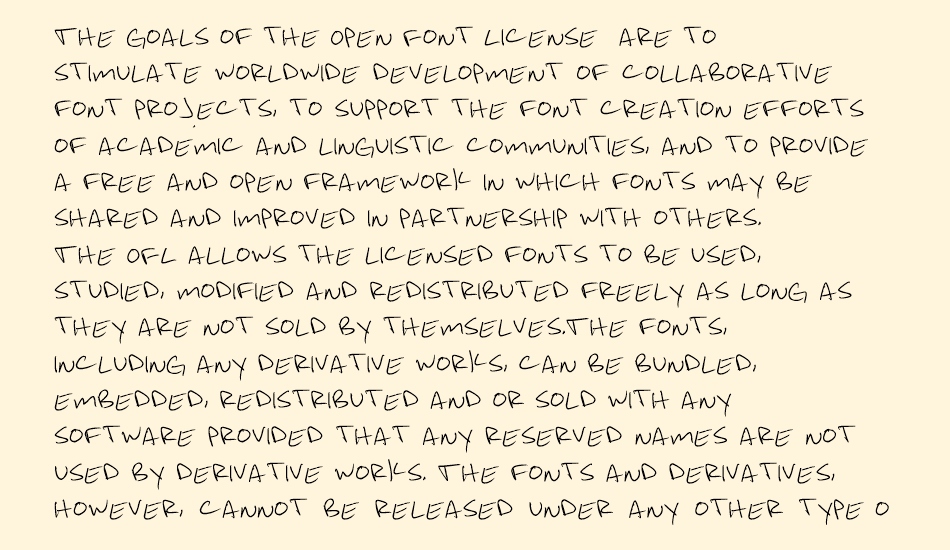 THE GOALS OF THE OPEN FONT LICENSE ARE TO
STIMULATE WORLDWIDE DEVELOPMENT OF COLLABORATIVE
FONT PROJECTS, TO SUPPORT THE FONT CREATION EFFORTS
OF ACADEMIC AND LINGUISTIC COMMUNITIES, AND TO PROVIDE
A FREE AND OPEN FRAMEWORK IN WHICH FONTS MAY BE
SHARED AND IMPROVED IN PARTNERSHIP WITH OTHERS.
THE OFL ALLOWS THE LICENSED FONTS TO BE USED,
STUDIED, MODIFIED AND REDISTRIBUTED FREELY AS LONG AS
THEY ARE NOT SOLD BY THEMSELVES.THE FONTS,
INCLUDING ANY DERIVATIVE WORKS, CAN BE BUNDLED,
EMBEDDED, REDISTRIBUTED AND OR SOLD WITH ANY
SOFTWARE PROVIDED THAT ANY RESERVED NAMES ARE NOT
USED BY DERIVATIVE WORKS. THE FONTS AND DERIVATIVES,
HOWEVER, CANNOT BE RELEASED UNDER ANY OTHER TYPE O